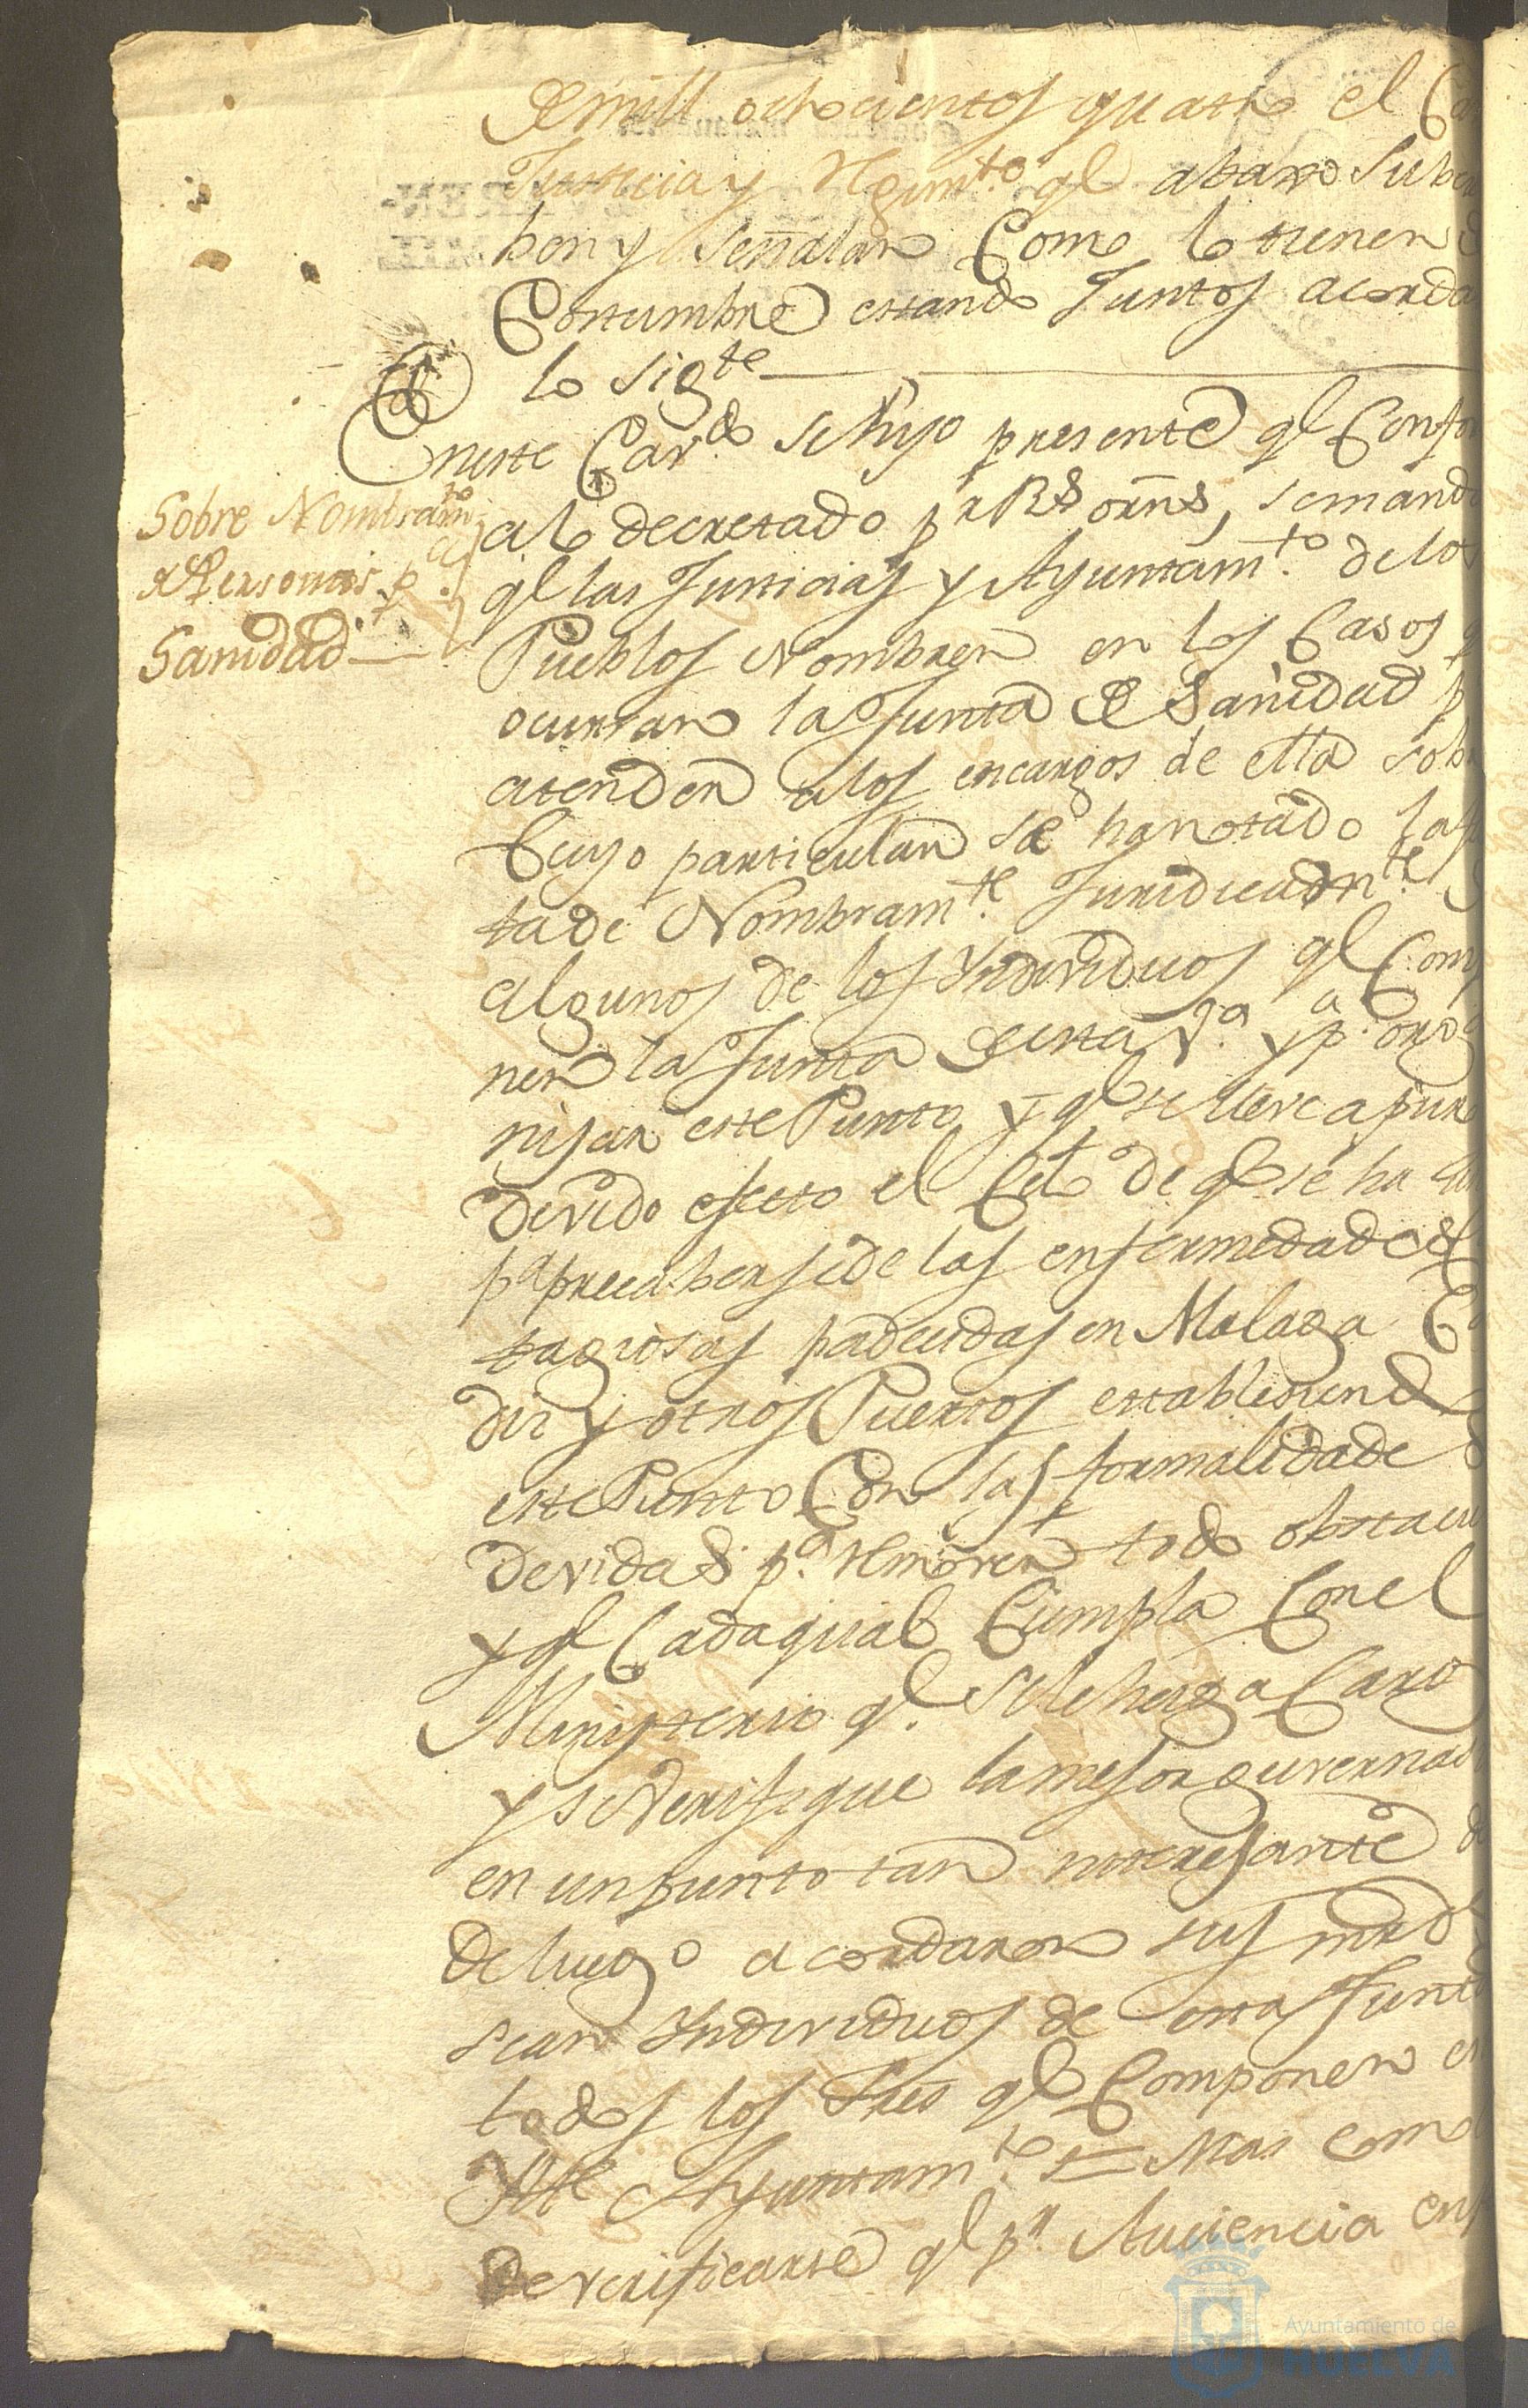 de mill ochocientos quatro el Ca
Justicia y Regim.to ql abaxo Subcri
ben y señalan Como lo tienen de
Costumbre estando Juntos acorda
lo sig.te
En este Cav.do se hizo presente ql Confor
Sobre Nombram.to
de Personas p.a
Sanidad
a lo decretado p.r R.s orñs, se manda
ql las Justicias y Ayuntam.to de los
Pueblos Nombren en los Casos q
ocurran la Junta de Sanidad p
atender a los encargos de ella sobr
Cuyo particular se ha notado la fal
ta de Nombram.to Juridicam.te
algunos de los Yndividuos ql Comp
nen la Junta de esta V.a y p.a org
nisar este Punto y ql se lleve a pur
devido efecto el Celo de ql se ha
p.a precaberse de las enfermedades
tagiosas padecidas en Malaga Ca
diz y otros Puertos establesiend
este Punto Con las formalidades
devidas p.a remover todo obstacu
y ql Cada qual Cumpla Con el
Ministerio q.l se le haga Cargo
y se Verifique la mejor guvernas
en un punto tan interesante d
de luego acordaron sus mrds
sean Yndividuos de esta Junta
todos los Sres ql Componen es
Ylte Ayuntam.to = Mas como
de verificarse ql p.r Auciencia enf
Ayuntamiento de
HUELVA